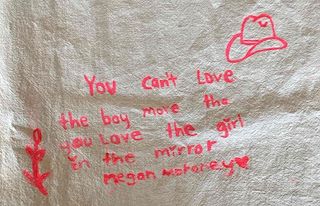 You can't Love
the boy more the
you Love the girl
in the mirror
megan moroney